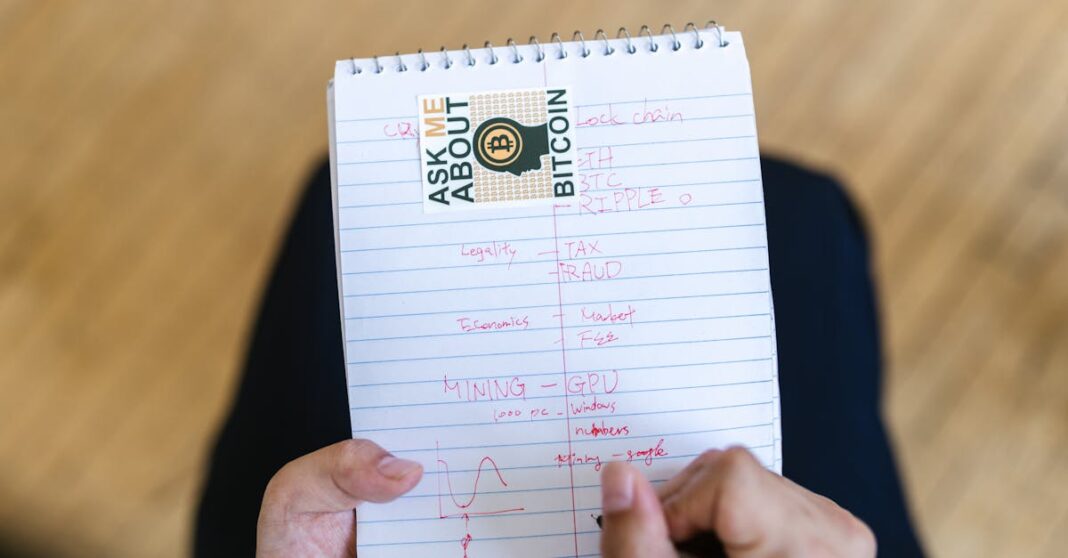 ASK ME
ABOUT
BITCOIN
Lock chain
ETH
BTC
RIPPLE
Legality — TAX
— FRAUD
Economics — Market
— FEE
MINING — GPU
1,000 pc - windows
numbers
Mining - google